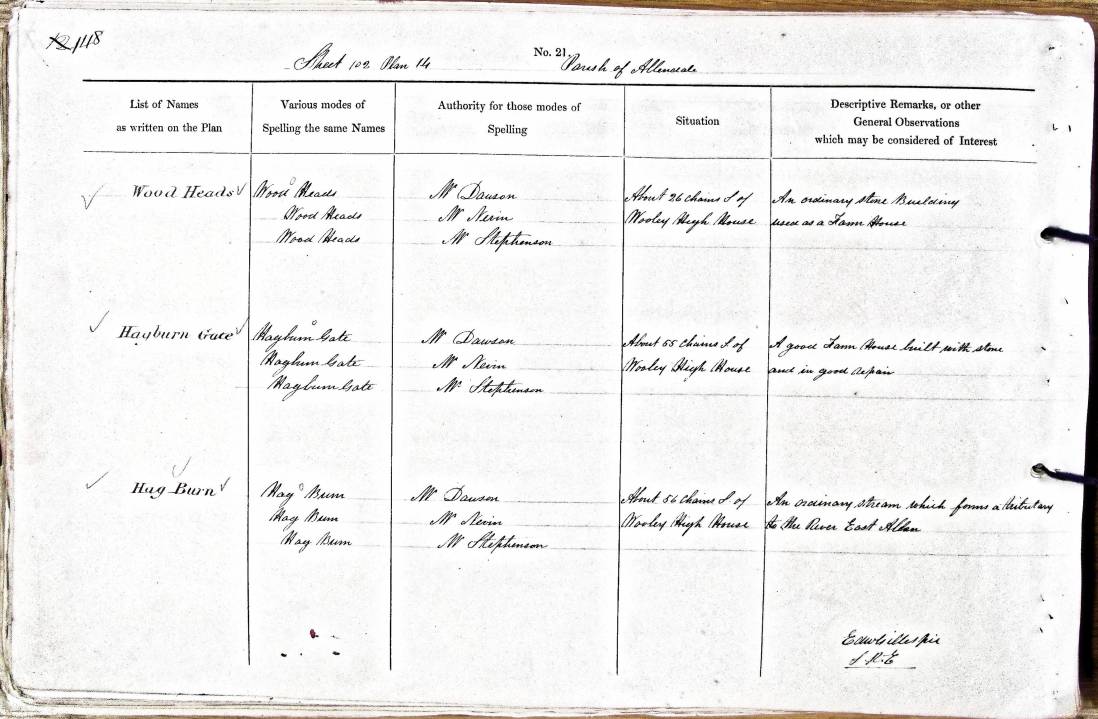 148
No. 21.
Sheet 102 Plan 14 Parish of Allendale
List of Names
as written on the Plan
Various modes of
Spelling the same Names
Authority for those modes of
Spelling
Situation
Descriptive Remarks, or other
General Observations
which may be considered of Interest
Wood Heads
Wood Heads
Wood Heads
Wood Heads
Mr Dawson
Mr Nevin
Mr Stephenson
About 26 chains S of
Wooley High House
An ordinary stone Building
used as a Farm House
Hagburn Gate
Hagburn Gate
Hagburn Gate
Hagburn Gate
Mr Dawson
Mr Nevin
Mr Stephenson
About 55 chains S of
Wooley High House
A good Farm House built with stone
and in good repair
Hag Burn
Hag Burn
Hag Burn
Hag Burn
Mr Dawson
Mr Nevin
Mr Stephenson
About 56 chains S. of
Wooley High House
An ordinary stream which forms a tributary
to the River East Allan
Edw Gillespie
S.R.E